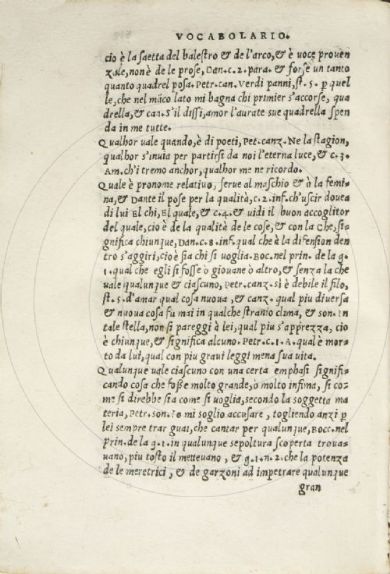 VOCABOLARIO.
cio è la saetta del balestro & de l'arco, & è voce prouen
zale, non è de le prose, Dan. c. 2. para. & forse un tanto
quanto quadrel posa. Petr. can. Verdi panni, st. 5. p quel
le, che nel māco lato mi bagna chi primier s'accorse, qua
drella, & can. S'il dissi, amor l'aurate sue quadrella spen
da in me tutte.
Qualhor uale quando, è di poeti, Pet. canz. Ne la stagion,
qualhor s'inuia per partirsi da noi l'eterna luce, & c. 3.
Am. ch'i tremo anchor, qualhor me ne ricordo.
Quale è pronome relatiuo, serue al maschio & à la femi
na, & Dante il pose per la qualità, c. 2. inf. ch'uscir douea
di lui El chi, El quale, & c. 4. & uidi il buon accoglitor
del quale, cio è de la qualità de le cose, & con la Che, si
gnifica chiunque, Dan. c. 8. inf. qual che à la difension den
tro s'aggiri, cio è sia chi si uoglia. Boc. nel prin. de la g.
1. qual che egli si fosse o giouane o altro, & senza la che
uale qualunque & ciascuno, Petr. canz. si è debile il filo,
st. 5. d'amar qual cosa nuoua, & canz. qual piu diuersa
& nuoua cosa fu mai in qualche stranio clima, & son. in
tale stella, non si pareggi à lei, qual piu s'apprezza, cio
è chiunque, & significa alcuno. Petr. c. 1. A. qual è mor
to da lui, qual con piu graui leggi mena sua uita.
Qualunque uale ciascuno con una certa emphasi signifi
cando cosa che fosse molto grande, ò molto infima, si co
me si direbbe sia come si uoglia, secondo la soggetta ma
teria, Petr. son. Io mi soglio accusare, togliendo anzi p
lei sempre trar guai, che cantar per qualunque, Bocc. nel
prin. de la g. 1. in qualunque sepoltura scoperta troua
uano, piu tosto il metteuano, & g. 1. n. 2. che la potenza
de le meretrici, & de garzoni ad impetrare qualunque
gran